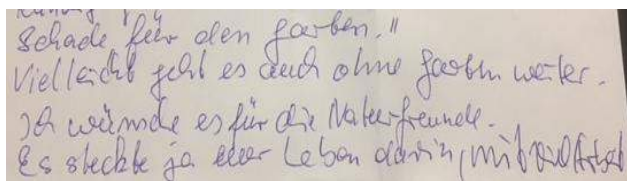 Schade für den Garten."
Vielleicht geht es auch ohne Garten weiter.
Ich wünsche es für die Naturfreunde.
Es steckte ja euer Leben darin, mit viel Arbeit